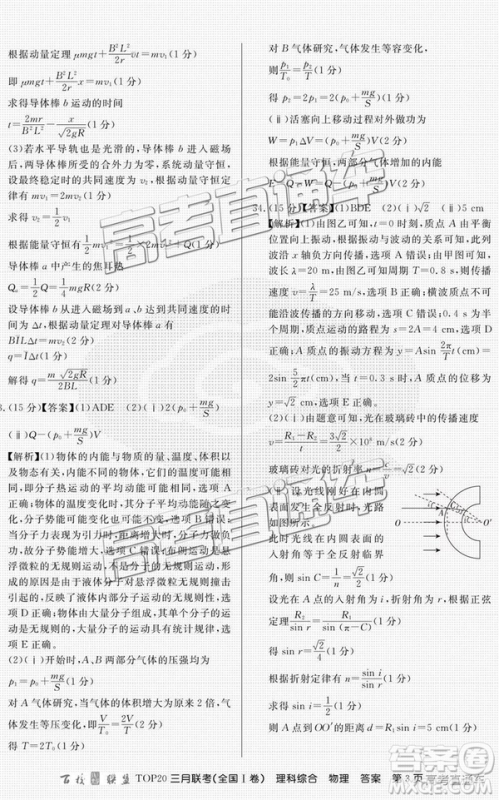 根据动量定理 μmgt+B²L²/2r x=mv₁(1分)
即 μmgt+B²L²/2r x=m√2gR(1分)
求得导体棒 b 运动的时间
t=2mr/B²L²−x/√2gR(1分)
(3)若水平导轨也是光滑的,导体棒 b 进入磁场
后,两导体棒所受的合外力为零,系统动量守恒,
设最终稳定时的共同速度为 v₂,根据动量守恒定
律有 mv₁=2mv₂(1分)
求得 v₂=1/2 v₁(1分)
根据能量守恒有 1/2 mv₁²=1/2×2mv₂²+Q(1分)
导体棒 a 中产生的焦耳热
Qₐ=1/2Q=1/4 mgR(1分)
设导体棒从进入磁场到 a、b 达到共同速度的时
间为 Δt,则
BĪLΔt=mv₂(1分)
q=ĪΔt(1分)
解得 q=m√2gR/2BL(1分)
3.(15分)【答案】(1)ADE (2)(ⅰ)2(p₀+mg/S)
(ⅱ)Q−(p₀+mg/S)V
【解析】(1)物体的内能与物质的量、温度、体积以
及物态有关,内能不同的物体,它们的温度可能
相等,即它们分子热运动的平均动能可能相等,A
正确;
为分子力做负功,所
以分子势能增大,选项C错误;布朗运动是悬
浮微粒的无规则运动,悬浮微粒的无规则运动,
形成的原因是由于液体分子对悬浮微粒无规则
撞击引起的,选项D正确;单个分子的运动
是无规则的,选项E正确.
(2)(ⅰ)开始时,A、B两部分气体的压强均为
p₁=p₀+mg/S(1分)
对 A 气体研究,当体积变为原来的 2 倍时,气体
发生的是等压变化,则 V/T₀=2V/T(2分)
求得 T=2T₀(1分)
对 B 气体研究,气体发生的是等容变化,则
p₁/T₀=p₂/T(1分)
求得 p₂=2p₁=2(p₀+mg/S)(1分)
(ⅱ)活塞向上移动过程对外做功为
W=p₁ΔV=(p₀+mg/S)V(1分)
根据能量守恒,两部分气体增加的内能
E=Q−W=Q−(p₀+mg/S)V(1分)
34.(15分)【答案】(1)BDE (2)(ⅰ)√2 (ⅱ)5 cm
【解析】(1)由图乙可知,t=0时刻,质点 A 由平衡
位置向上振动,根据振动与波动的关系可知,此列
波沿 x 轴负方向传播,选项A错误;由图甲可知,
波长 λ=20 m,由图乙可知周期 T=0.8 s,则波传
播速度 v=λ/T=25 m/s,选项B正确;横波质点不可
能沿波传播的方向移动,选项C错误;任意半个
周期内质点运动的路程为 s=2A=4 cm,选项D
正确;质点 A 的振动方程为 y=Asin 2π/T t(cm)=
2sin 5/2 πt(cm),当 t=0.3 s 时,质点 A 的位移为
√2 cm,选项E正确.
(2)(ⅰ)由题意可知,光在玻璃砖中的传播速度
v=R₁−R₂/t=3√2/2×10⁸ m/s(2分)
玻璃砖对光的折射率 n=c/v=√2(1分)
(ⅱ)设光线刚好在内圆
表面发生全反射时,光路
如图所示.
此时光线在内圆表面的
入射角等于全反射临界
角,则 sin C=1/n=√2/2(1分)
设光在 A 点的入射角为 i,折射角为 r,根据正弦
定理有 R₂/sin r=R₁/sin (π−C)(1分)
求得 sin r=√2/4(1分)
根据折射定律有 n=sin i/sin r(1分)
求得 sin i=1/2(1分)
因此 A 点到OO′的距离 d=R₁sin i=5 cm(1分)
O O′
百校联盟 TOP20 三月联考(全国Ⅰ卷) 理科综合 物理 答案 第3页
高考直通车